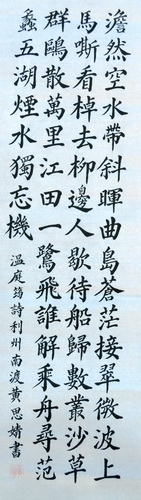 澹然空水帶斜暉曲島蒼茫接翠微波上
馬嘶看棹去柳邊人歇待船歸數叢沙草
群鷗散萬里江田一鷺飛誰解乘舟尋范
蠡五湖煙水獨忘機
溫庭筠詩利州南渡黃思婧書